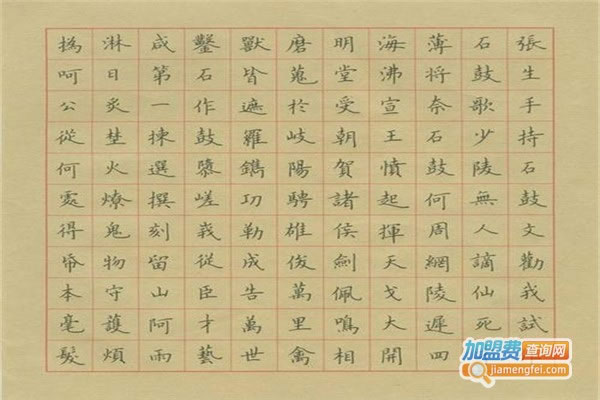 張生手持石鼓文勸我試
石鼓歌少陵無人謫仙死
薄將奈石鼓何周網陵遲四
海沸宣王憤起揮天戈大開
明堂受朝賀諸侯劍佩鳴相
磨蒐於岐陽騁雄俊萬里禽
獸皆遮羅鐫功勒成告萬世
鑿石作鼓隳嵯峩從臣才藝
咸第一揀選撰刻留山阿雨
淋日炙埜火燎鬼物守護煩
撝呵公從何處得帋本毫髮
加盟费查询网
jiamengfei.com